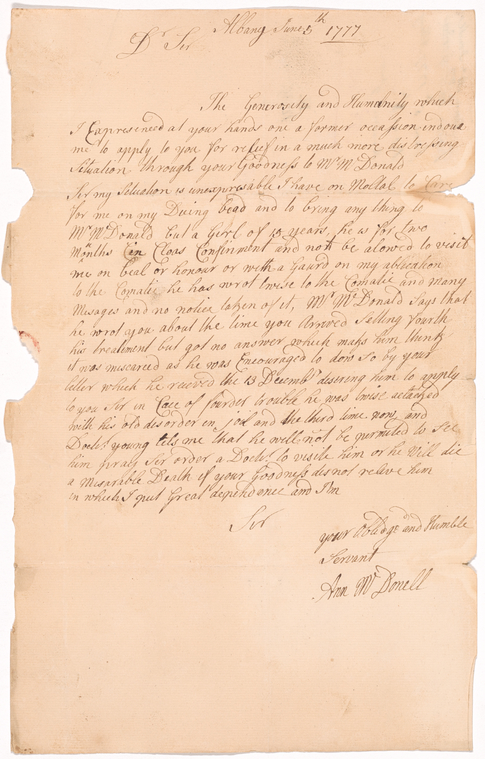 Albany June 5th 1777
Dr Sir
The Generosity and Humanity which
I Expresinced at your hands one a former occassion indous
me to apply to you for relief in a much more distressing
Situation through your Goodness to Mr McDonald
Sir my Situation is unexpresable I have on Mortal to Care
for me on my Dieing bead and to bring any thing to
Mr McDonald but a Girl of 10 years, he is for two
Months in Cloas Confinment and not be alowed to visit
me on beal or honour or with a Gaurd on my ablication
to the Comatie he has wrot twise to the Comatie and Many
Misages and no notice taken of it, Mr McDonald Says that
he wrot you about the time you Arived Setting fourth
his treatment but got no answer which maks him think
it was miscared as he was Encouraged to do so by your
letter which he recived the 13 Decembr desireing him to apply
to you Sir in Case of fourder trouble he was twise attacked
with his old desorder in jeal and the third time nows and
Doctr young tels me that he will not be permited to See
him pray Sir order a Doctr to visite him or he Will die
a Misarable Death if your Goodness dis not relive him
in which I put Great dependence and I'm
Sir
your Obledged and Humble
Servant
Ann McDonell